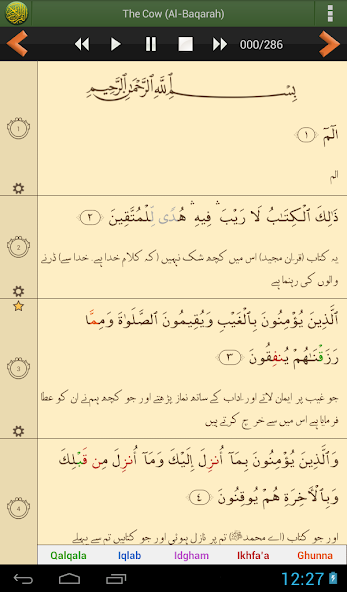 The Cow (Al-Baqarah)
000/286
بِسْمِ ٱللَّهِ ٱلرَّحْمَٰنِ ٱلرَّحِيمِ
1
الٓمٓ ﴿١﴾
الم
ذَٰلِكَ ٱلْكِتَٰبُ لَا رَيْبَ ۛ فِيهِ ۛ هُدًى لِّلْمُتَّقِينَ ﴿٢﴾
2
یہ کتاب (قرآن مجید) اس میں کچھ شک نہیں (کہ کلامِ خدا ہے۔ خدا سے) ڈرنے
والوں کی رہنما ہے
ٱلَّذِينَ يُؤْمِنُونَ بِٱلْغَيْبِ وَيُقِيمُونَ ٱلصَّلَوٰةَ وَمِمَّا
رَزَقْنَٰهُمْ يُنفِقُونَ ﴿٣﴾
3
جو غیب پر ایمان لاتے اور آداب کے ساتھ نماز پڑھتے اور جو کچھ ہم نے ان کو عطا
فرمایا ہے اس میں سے خرچ کرتے ہیں
وَٱلَّذِينَ يُؤْمِنُونَ بِمَآ أُنزِلَ إِلَيْكَ وَمَآ أُنزِلَ مِن قَبْلِكَ
وَبِٱلْءَاخِرَةِ هُمْ يُوقِنُونَ ﴿٤﴾
4
اور جو کتاب (اے محمدﷺ) تم پر نازل ہوئی اور جو کتابیں تم سے پہلے
Qalqala Iqlab Idgham Ikhfa'a Ghunna
12:27